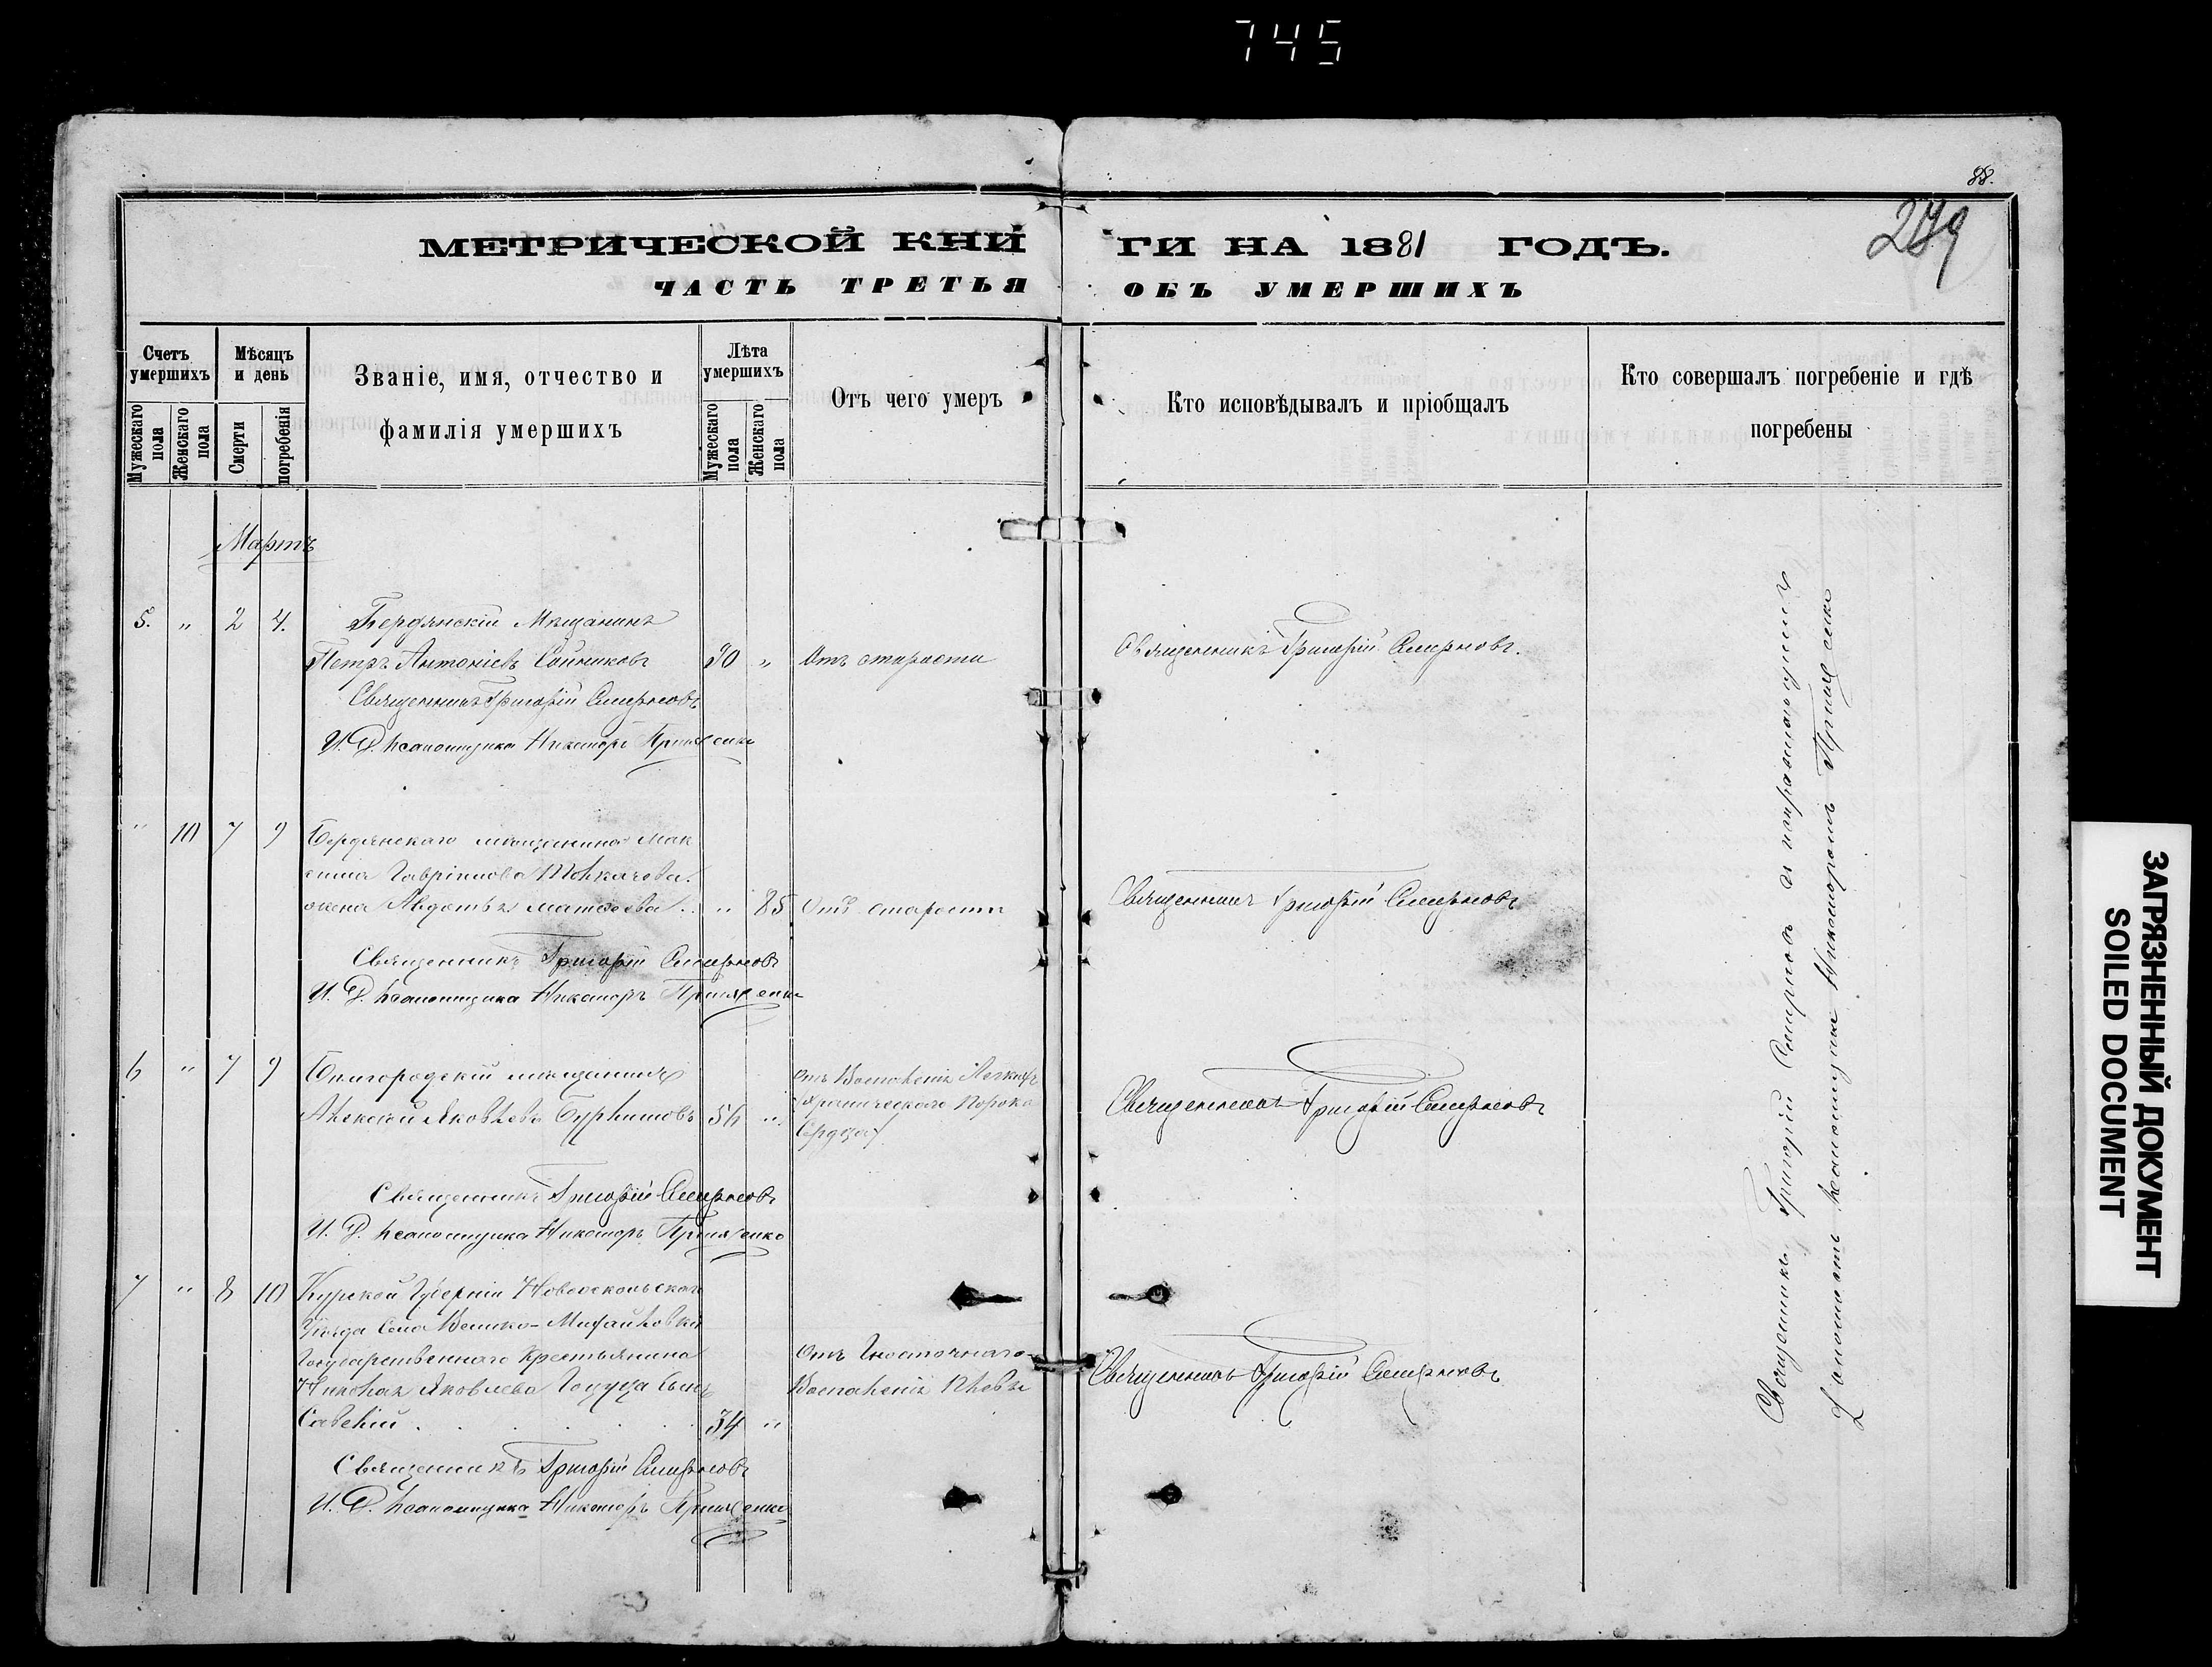 745
88.
279
МЕТРИЧЕСКОЙ КНИ ГИ НА 1881 ГОДЪ.
ЧАСТЬ ТРЕТЬЯ ОБЪ УМЕРШИХЪ
Счетъ умершихъ
Мужескаго пола
Женскаго пола
Мѣсяцъ и день
Смерти
погребенія
Званіе, имя, отчество и
фамилія умершихъ
Лѣта умершихъ
Мужескаго пола
Женскаго пола
Отъ чего умеръ
Кто исповѣдывалъ и пріобщалъ
Кто совершалъ погребеніе и гдѣ
погребены
Мартъ
5. " 2 4. Бердянскій Мѣщанинъ
Петръ Антоніевъ " Отъ старости Священникъ Григорій Смирновъ.
Священникъ Григорій Смирновъ
И. Д. Псаломщика Никаноръ
" 10 7 9 Бердянскаго мѣщанина Мак
сима Гавріилова Толкачева
жена Авдотья Матвѣева " 85 Отъ старости Священникъ Григорій Смирновъ
Священникъ Григорій Смирновъ
И. Д. Псаломщика Никаноръ
6 " 7 9 Бѣлгородскій мѣщанинъ
Алексѣй Яковлевъ "
Отъ Воспаленія Легкихъ
Порока
Сердца
Священникъ Григорій Смирновъ
Священникъ Григорій Смирновъ
И. Д. Псаломщика Никаноръ
7 " 8 10 Курской Губерніи Новооскольскаго
Уѣзда Села Велико-Михайловки
Государственнаго Крестьянина
Николая Яковлева сынъ
Савелій 34 "
Отъ
Воспаленія Плевы
Священникъ Григорій Смирновъ
Священникъ Григорій Смирновъ
И. Д. Псаломщика Никаноръ
Священникъ Григорій Смирновъ и исправляющимъ
должность псаломщика Никаноромъ
ЗАГРЯЗНЕННЫЙ ДОКУМЕНТ
SOILED DOCUMENT